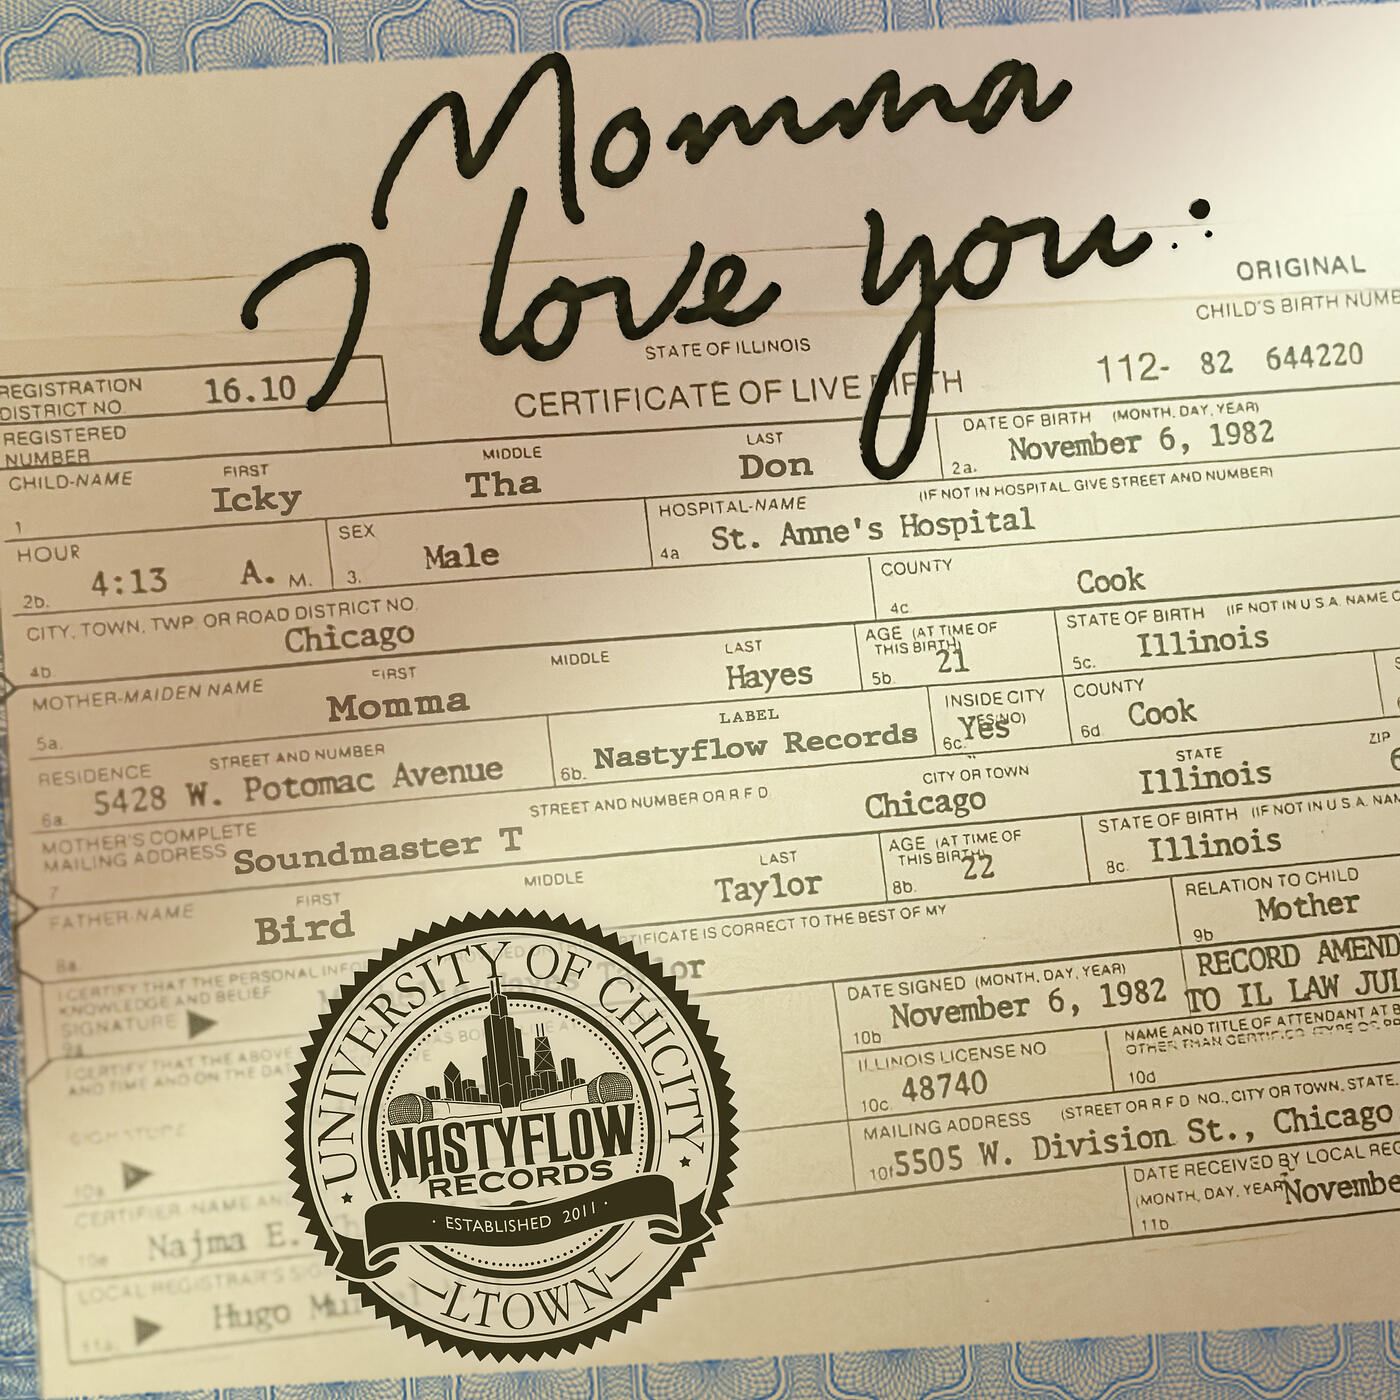 Momma
I love you..:
ORIGINAL
CHILD'S BIRTH
STATE OF ILLINOIS
CERTIFICATE OF LIVE BIRTH
112- 82 644220
REGISTRATION
DISTRICT NO. 16.10
REGISTERED
NUMBER
DATE OF BIRTH (MONTH, DAY, YEAR)
2a. November 6, 1982
CHILD-NAME FIRST MIDDLE LAST
1 Icky Tha Don
HOUR
2b. 4:13 A. M.
SEX
3. Male
HOSPITAL-NAME (IF NOT IN HOSPITAL, GIVE STREET AND NUMBER)
4a St. Anne's Hospital
CITY, TOWN, TWP. OR ROAD DISTRICT NO.
4b. Chicago
COUNTY
4c. Cook
MOTHER-MAIDEN NAME FIRST MIDDLE LAST
5a. Momma Hayes
AGE (AT TIME OF
THIS BIRTH)
5b. 21
STATE OF BIRTH (IF NOT IN U.S.A. NAME
5c. Illinois
RESIDENCE STREET AND NUMBER
6a. 5428 W. Potomac Avenue
LABEL
6b. Nastyflow Records
INSIDE CITY
(YES/NO)
6c. Yes
COUNTY
6d. Cook
MOTHER'S COMPLETE
MAILING ADDRESS
STREET AND NUMBER OR R.F.D.
CITY OR TOWN STATE ZIP
7 Soundmaster T Chicago Illinois
FATHER-NAME FIRST MIDDLE LAST
8a. Bird Taylor
AGE (AT TIME OF
THIS BIRTH)
8b. 22
STATE OF BIRTH (IF NOT IN U.S.A.
8c. Illinois
I CERTIFY THAT THE PERSONAL
CERTIFICATE IS CORRECT TO THE BEST OF MY
KNOWLEDGE AND BELIEF
SIGNATURE
9a
RELATION TO CHILD
9b Mother
I CERTIFY THAT THE ABOVE
AND TIME AND ON THE
SIGNATURE
10a
DATE SIGNED (MONTH, DAY, YEAR)
10b November 6, 1982
RECORD
TO IL LAW
ILLINOIS LICENSE NO.
10c. 48740
NAME AND TITLE OF ATTENDANT AT
OTHER THAN
10d
CERTIFIER-NAME
10e Najma E.
MAILING ADDRESS (STREET OR R.F.D. NO., CITY OR TOWN, STATE,
10f 5505 W. Division St., Chicago
LOCAL REGISTRAR'S
11a. Hugo
DATE RECEIVED BY LOCAL
(MONTH, DAY, YEAR)
11b.
UNIVERSITY OF CHICITY
NASTYFLOW
RECORDS
· ESTABLISHED 2011 ·
LTOWN